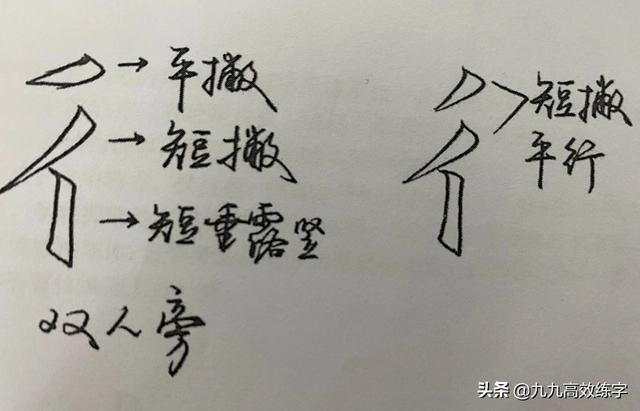 →平撇
→短撇
→短垂露竖
双人旁
短撇
平行
头条 @九九高效练字